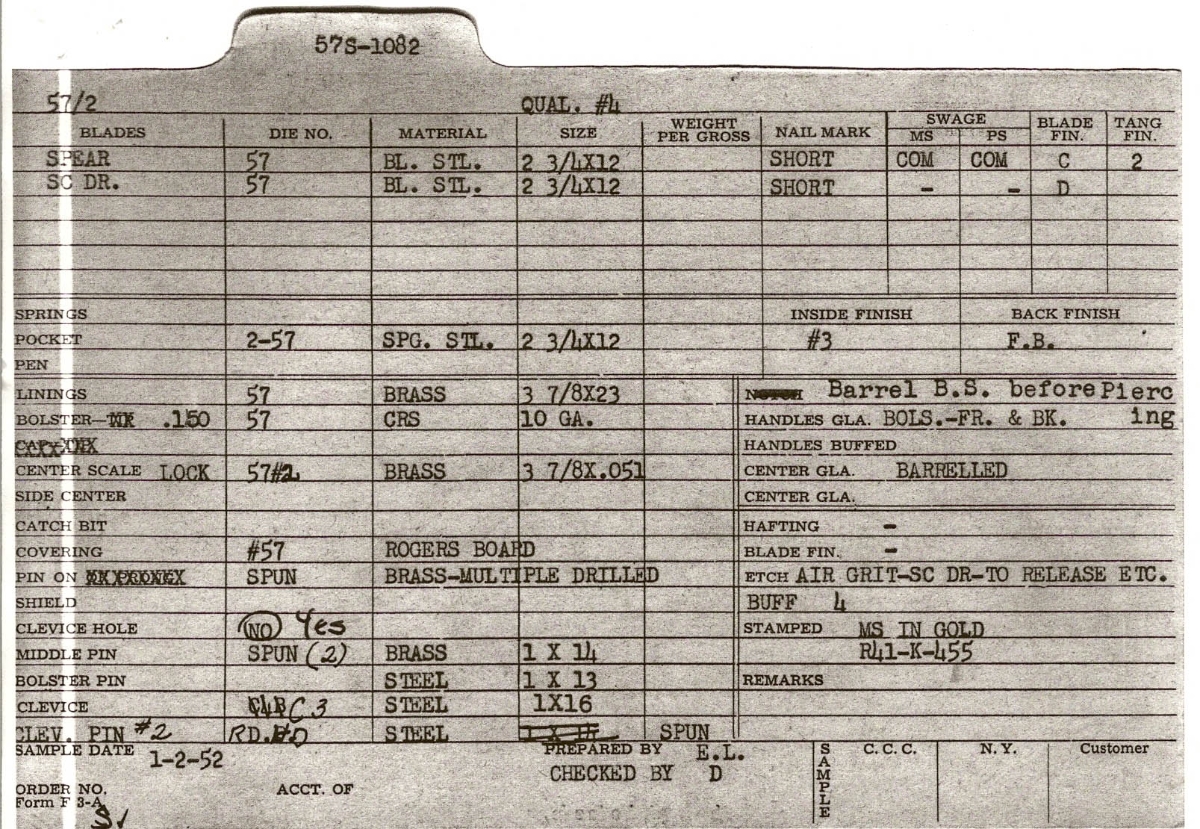 57S-1082
57/2 QUAL. #4
BLADES DIE NO. MATERIAL SIZE WEIGHT PER GROSS NAIL MARK SWAGE MS PS BLADE FIN. TANG FIN.
SPEAR 57 BL. STL. 2 3/4X12 SHORT COM COM C 2
SC DR. 57 BL. STL. 2 3/4X12 SHORT - - D
SPRINGS INSIDE FINISH BACK FINISH
POCKET 2-57 SPG. STL. 2 3/4X12 #3 F.B.
PEN
LININGS 57 BRASS 3 7/8X23 NOTCH Barrel B.S. before Pierc
BOLSTER— .150 57 CRS 10 GA. HANDLES GLA. BOLS.-FR. & BK. ing
HANDLES BUFFED
CENTER SCALE LOCK 57#2 BRASS 3 7/8X.051 CENTER GLA. BARRELLED
SIDE CENTER CENTER GLA.
CATCH BIT HAFTING -
COVERING #57 ROGERS BOARD BLADE FIN. -
PIN ON SPUN BRASS-MULTIPLE DRILLED ETCH AIR GRIT-SC DR-TO RELEASE ETC.
SHIELD BUFF 4
CLEVICE HOLE NO Yes STAMPED MS IN GOLD
MIDDLE PIN SPUN (2) BRASS 1 X 14 R41-K-455
BOLSTER PIN STEEL 1 X 13 REMARKS
CLEVICE C3 STEEL 1X16
CLEV. PIN #2 RD. STEEL 1 X 14 SPUN
SAMPLE DATE 1-2-52 PREPARED BY E.L. SAMPLE C.C.C. N.Y. Customer
CHECKED BY D
ORDER NO. ACCT. OF
Form F 3-A